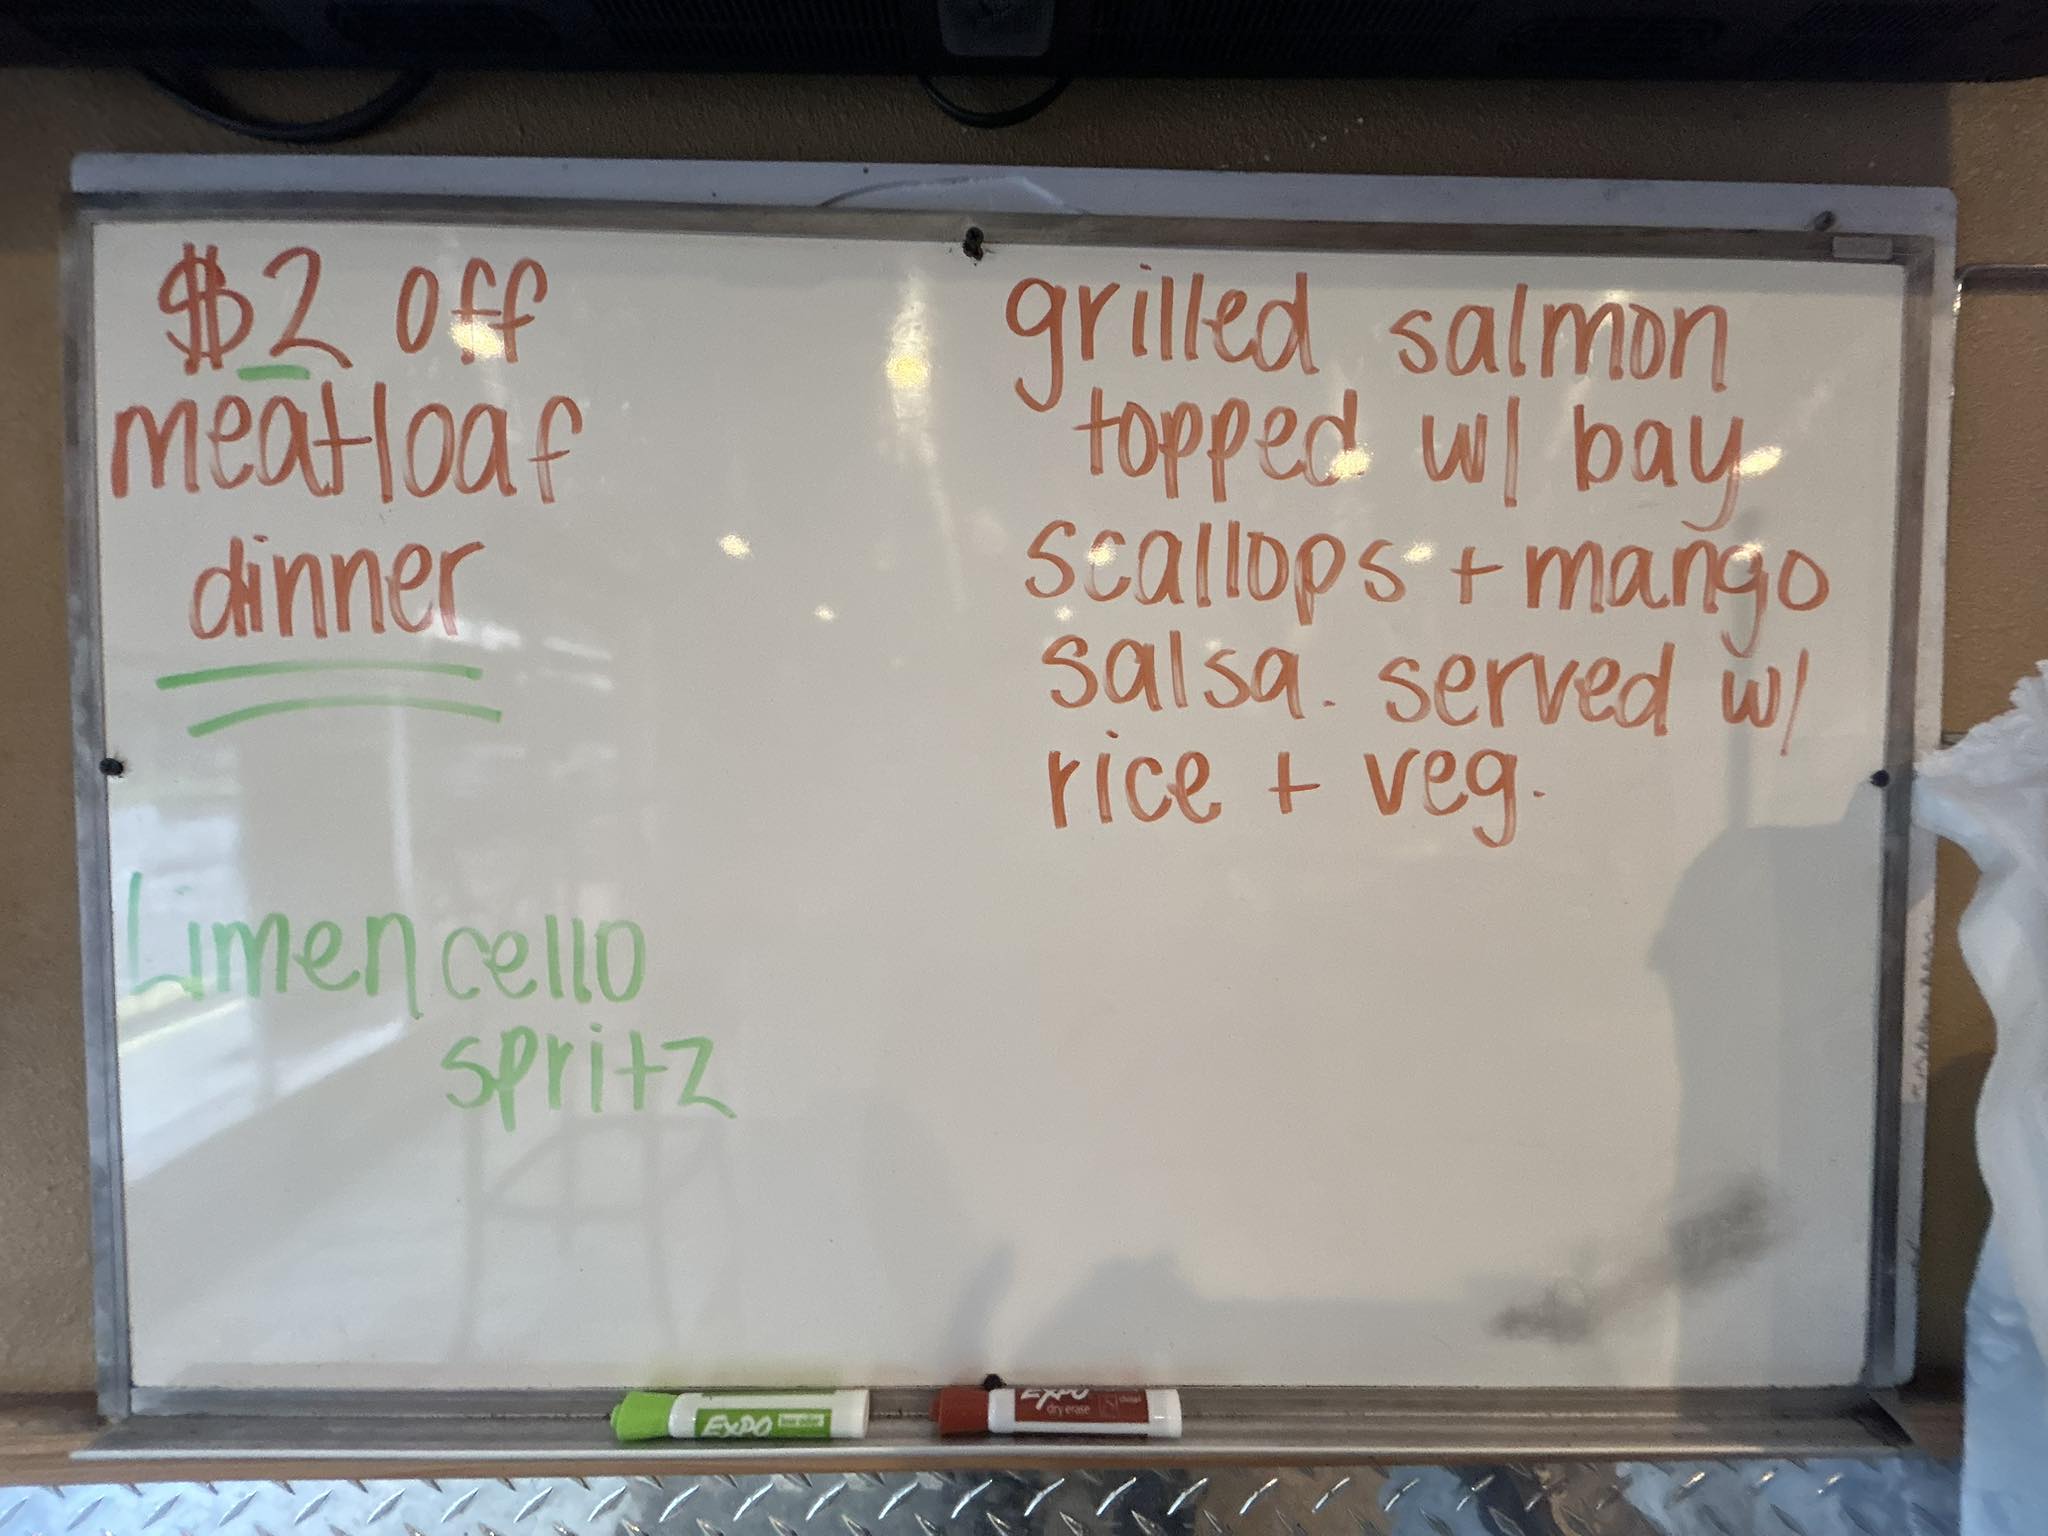 $2 off
meatloaf
dinner
Limencello
spritz
grilled salmon
topped w/ bay
scallops + mango
salsa. served w/
rice + veg.
EXPO
low odor
EXPO
dry erase